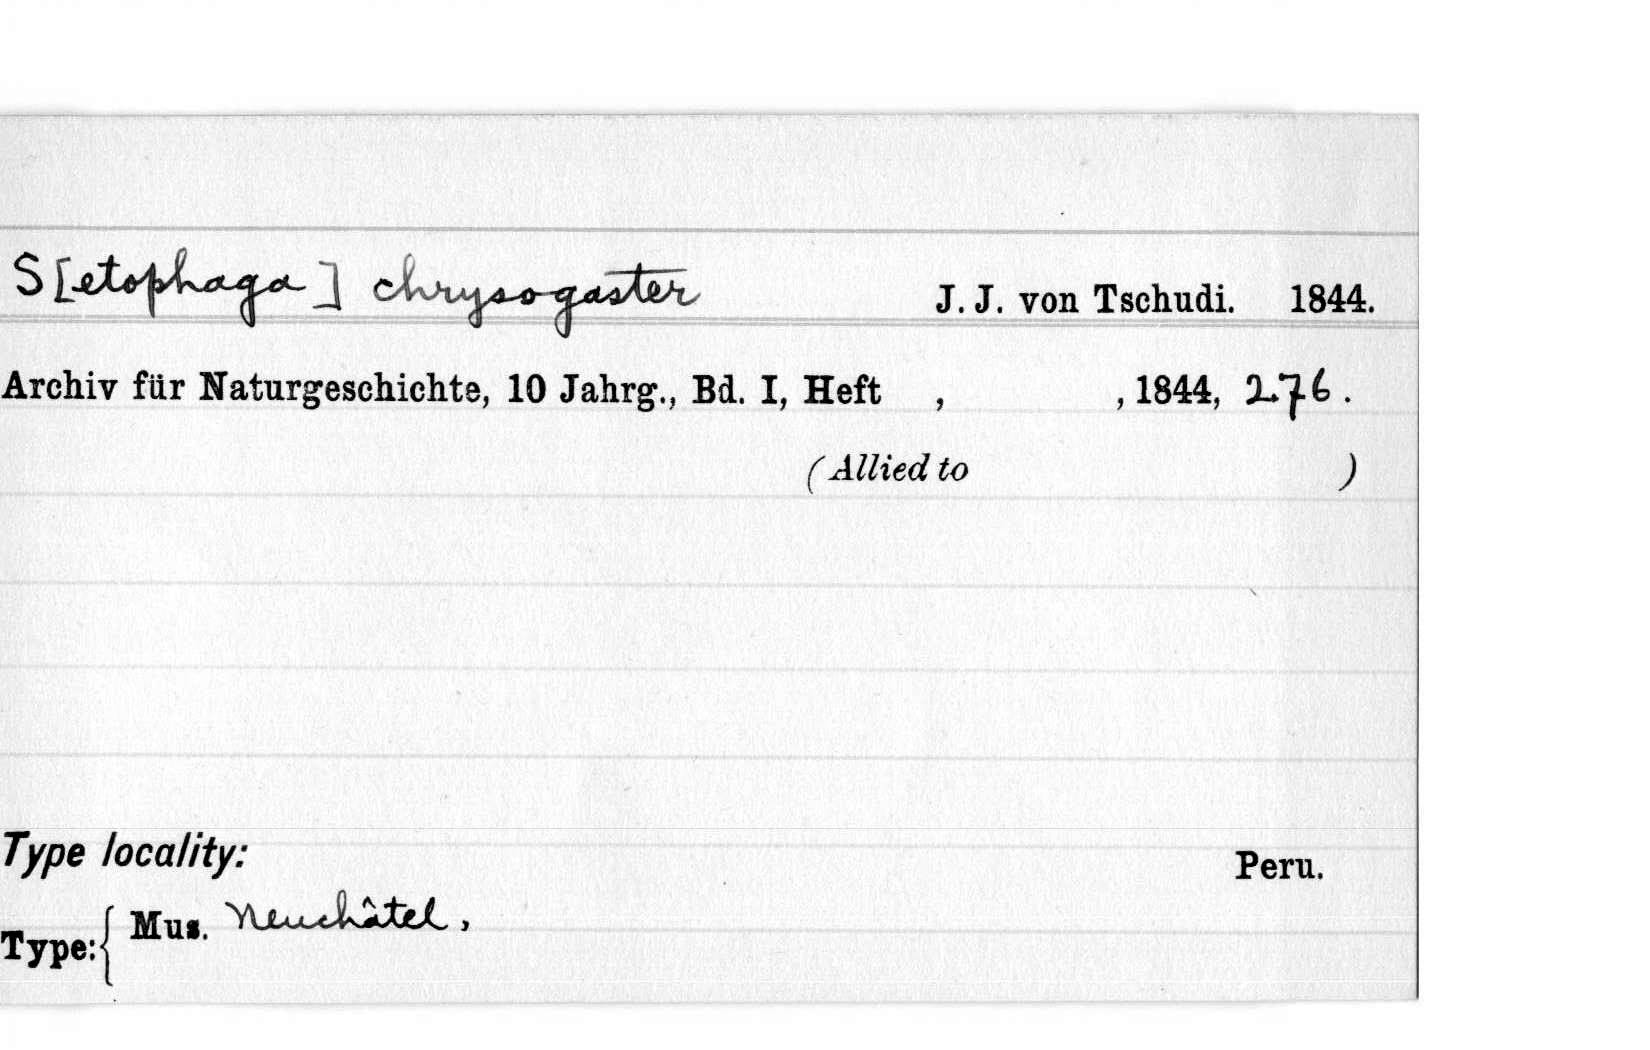 S[etophaga] chrysogaster J. J. von Tschudi. 1844.
Archiv für Naturgeschichte, 10 Jahrg., Bd. I, Heft , , 1844, 276.
(Allied to )
Type locality: Peru.
Type: { Mus. Neuchâtel,